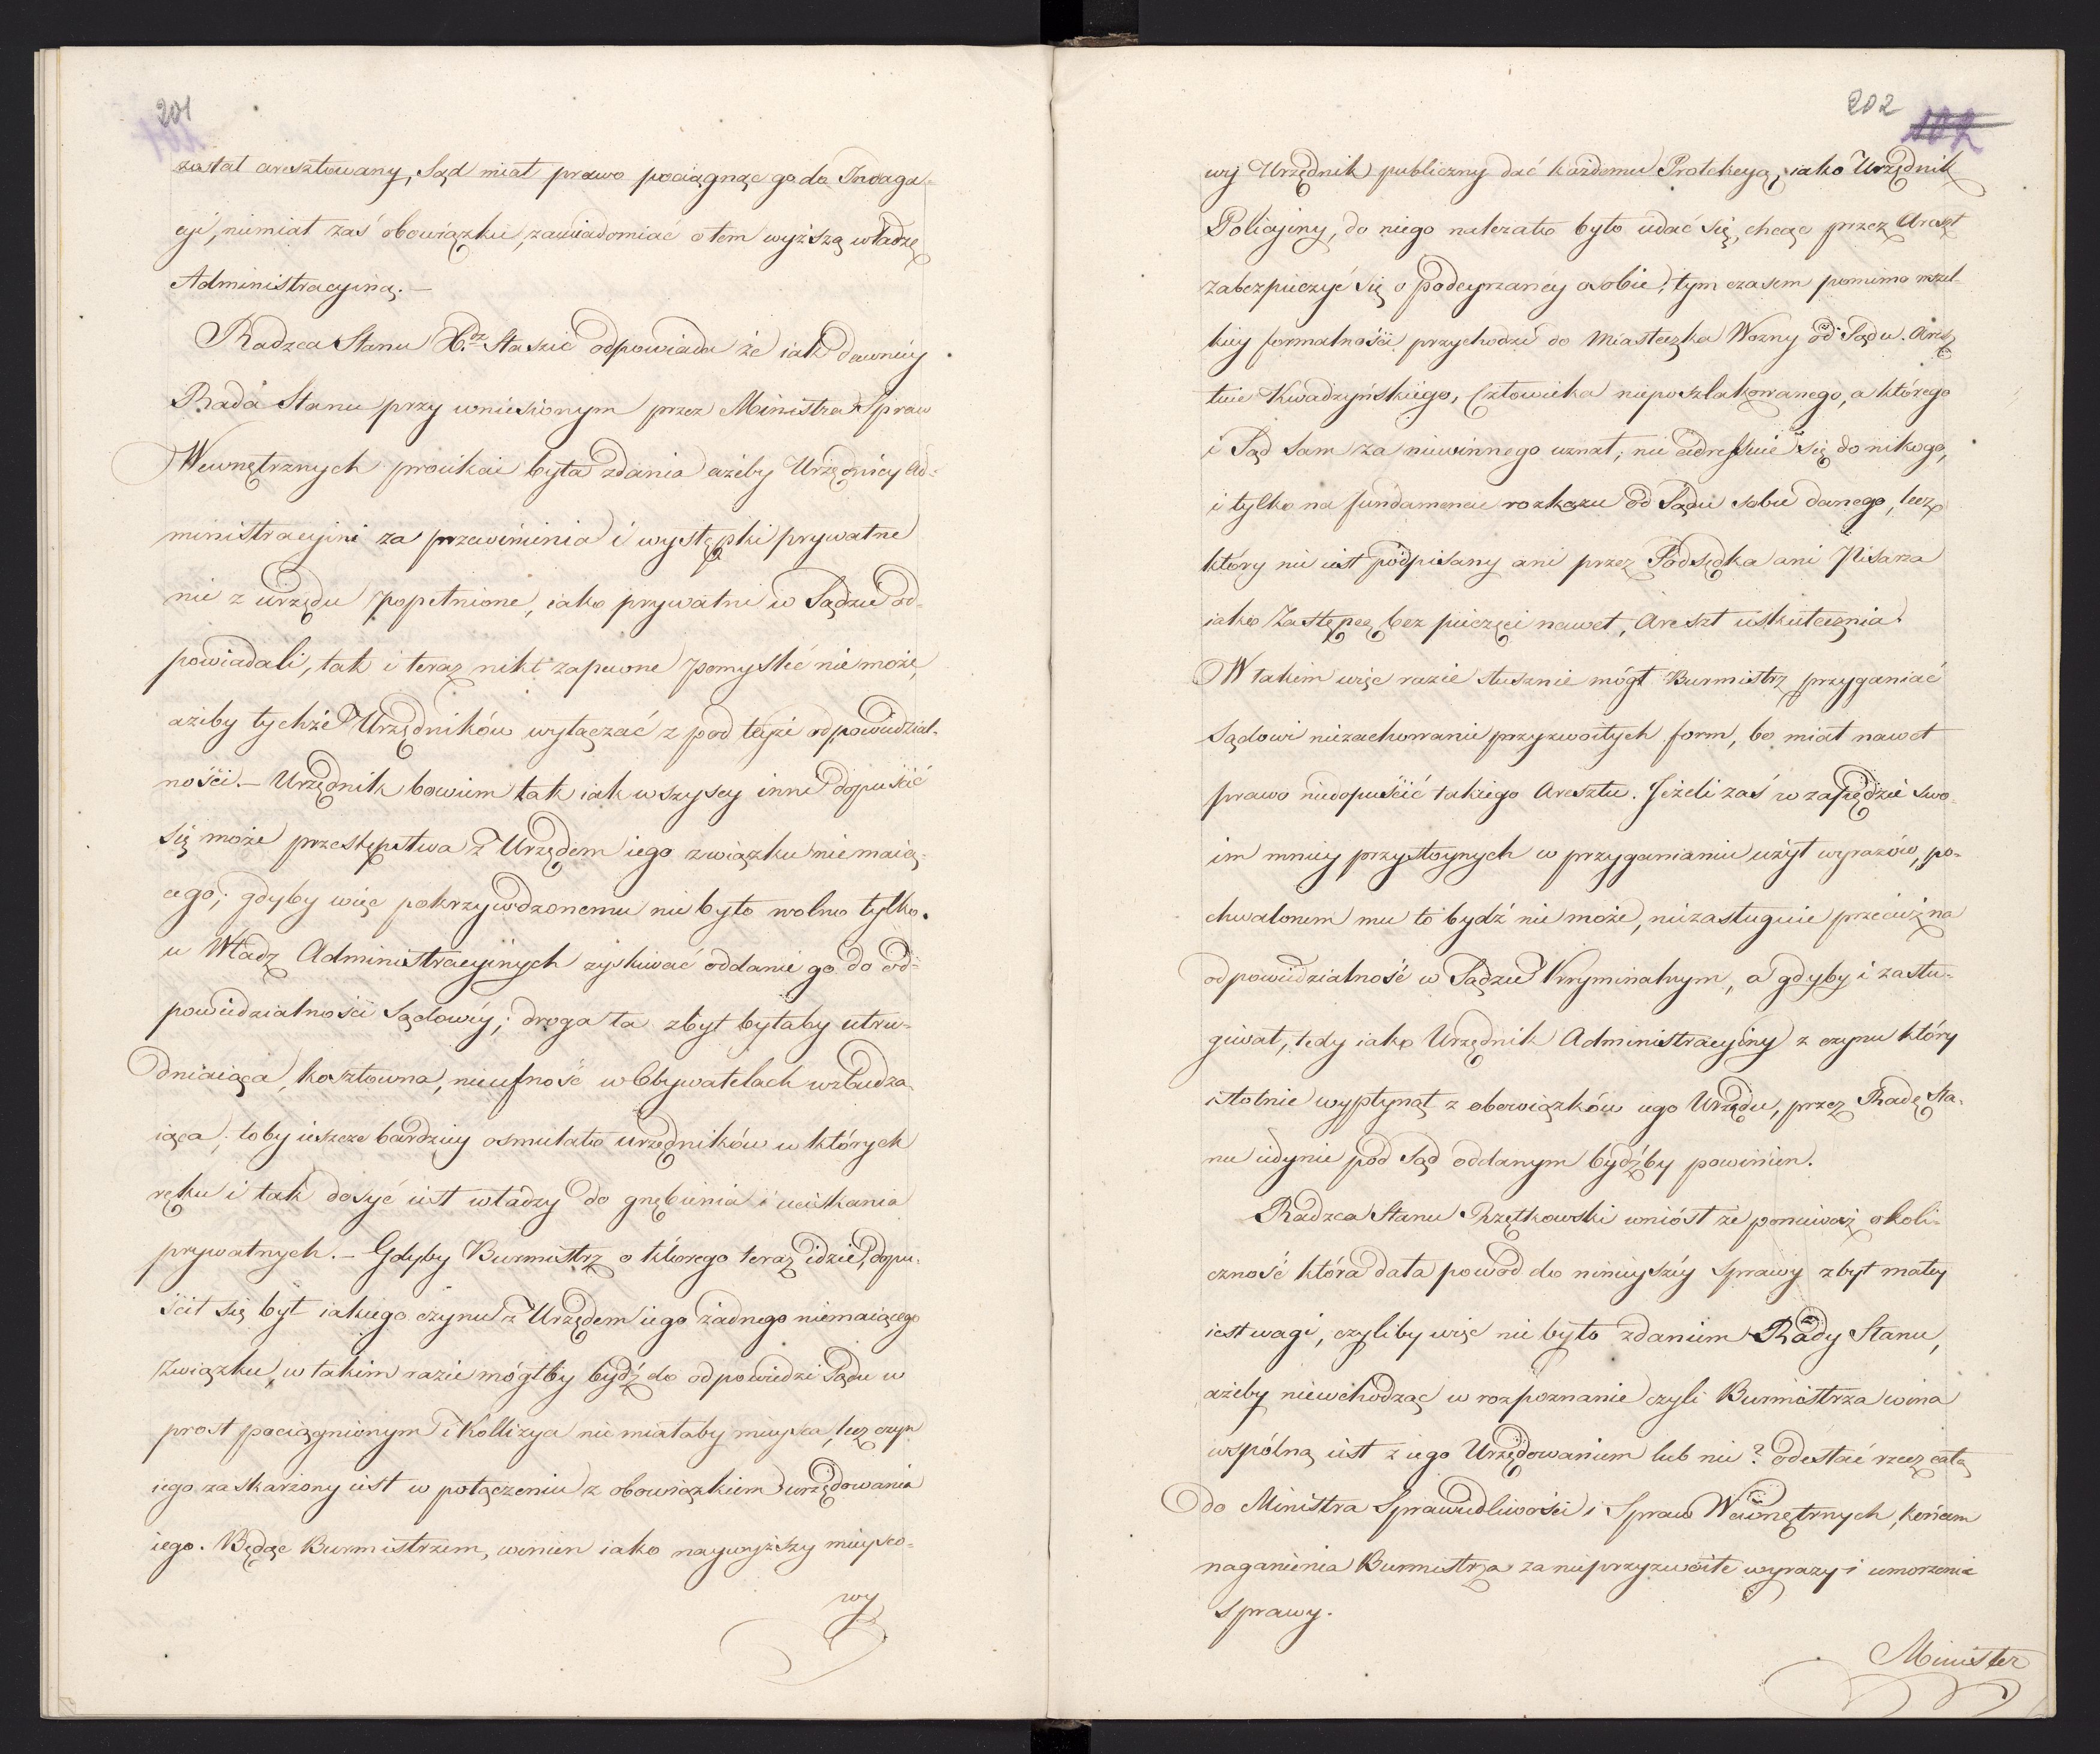 201
został aresztowany, Sąd miał prawo pociągnąć go do Indaga-
cyi, niemiał zaś obowiązku, zawiadomiać o tem wyższą władzę
Administracyiną.—
Radzca Stanu X.dz Staszic odpowiada że iak dawniey
Rada Stanu przy wniesionym przez Ministra Spraw
Wewnętrznych proiikcie była zdania ażeby Urzędnicy Ad-
ministracyini za przewinienia i występki prywatne
nie z urzędu popełnione, iako prywatni w Sądzie od-
powiadali, tak i teraz nikt zapewne pomyśleć nie może,
ażeby tychże Urzędników wyłączać z pod teyże odpowiedzial-
ności.— Urzędnik bowiem tak iak wszyscy inni dopuścić
się może przestępstwa z Urzędem iego związku niemaią-
cego; gdyby więc pokrzywdzonemu nie było wolno tylko
u Władz Administracyinych zyskiwać oddanie go do od-
powiedzialności Sądowéy; droga ta zbyt byłaby utru-
dniaiąca, kosztowna, nieufność w Obywatelach wzbudza-
iąca, toby ieszcze bardziey osmulało urzędników w których
ręku i tak dosyć iest władzy do gnębienia i uciskania
prywatnych.— Gdyby Burmistrz o którego teraz idzie, dopu-
ścił się był iakiego czynu z Urzędem iego żadnego niemaiącego
związku, w takim razie mógłby bydź do odpowiedzi Sądu w
prost pociągnionym i Kollizya nie miałaby mieysca, lecz czyn
iego zaskarżony iest w połączeniu z obowiązkiem urzędowania
iego. Będąc Burmistrzem, winien iako naywyższy mieysco-
wy
202
102
wy Urzędnik publiczny dać każdemu Protekcyą, iako Urzędnik
Policyiny, do niego należało było udać się, chcąc przez Areszt
zabezpieczyć się o podeyrzanéy osobie, tym czasem pomimo wszel-
kiey formalności przychodzi do Miasteczka Wozny od Sądu. Aresz
tuie Kwadzyńskiego, Człowieka nieposzlakowanego, a którego
i Sąd sam za niewinnego uznał, nie adressuie się do nikogo,
i tylko na fundamencie rozkazu od Sądu sobie danego, lecz
który nie iest podpisany ani przez Podsędka ani Pisarza
iako Zastępcę, bez pieczęci nawet, Areszt uskutecznia.
W takim więc razie słusznie mógł Burmistrz przyganiać
Sądowi niezachowanie przyzwoitych form, bo miał nawet
prawo niedopuścić takiego Aresztu. Jeżeli zaś w zapędzie swo-
im mniey przystoynych w przyganianiu użył wyrazów, po-
chwalonem mu to bydź nie może, niezasługuie przecież na
odpowiedzialność w Sądzie Kryminalnym, a gdyby i zasłu-
giwał, tedy iako Urzędnik Administracyiny z czynu który
istotnie wypłynął z obowiązków iego Urzędu, przez Radę Sta-
nu iedynie pod Sąd oddanym bydźby powinien.
Radzca Stanu Rzętkowski wniósł że ponieważ okoli-
czność która dała powód do ninieyszéy Sprawy zbyt małey
iest wagi, czyliby więc nie było zdaniem Rady Stanu,
ażeby niewchodząc w rozpoznanie czyli Burmistrza wina
wspólną iest z iego Urzędowaniem lub nie? odesłać rzecz całą
do Ministra Sprawiedliwości i Spraw Wewnętrznych, końcem
naganienia Burmistrza za nieprzyzwoite wyrazy i umorzenia
sprawy.
Minister